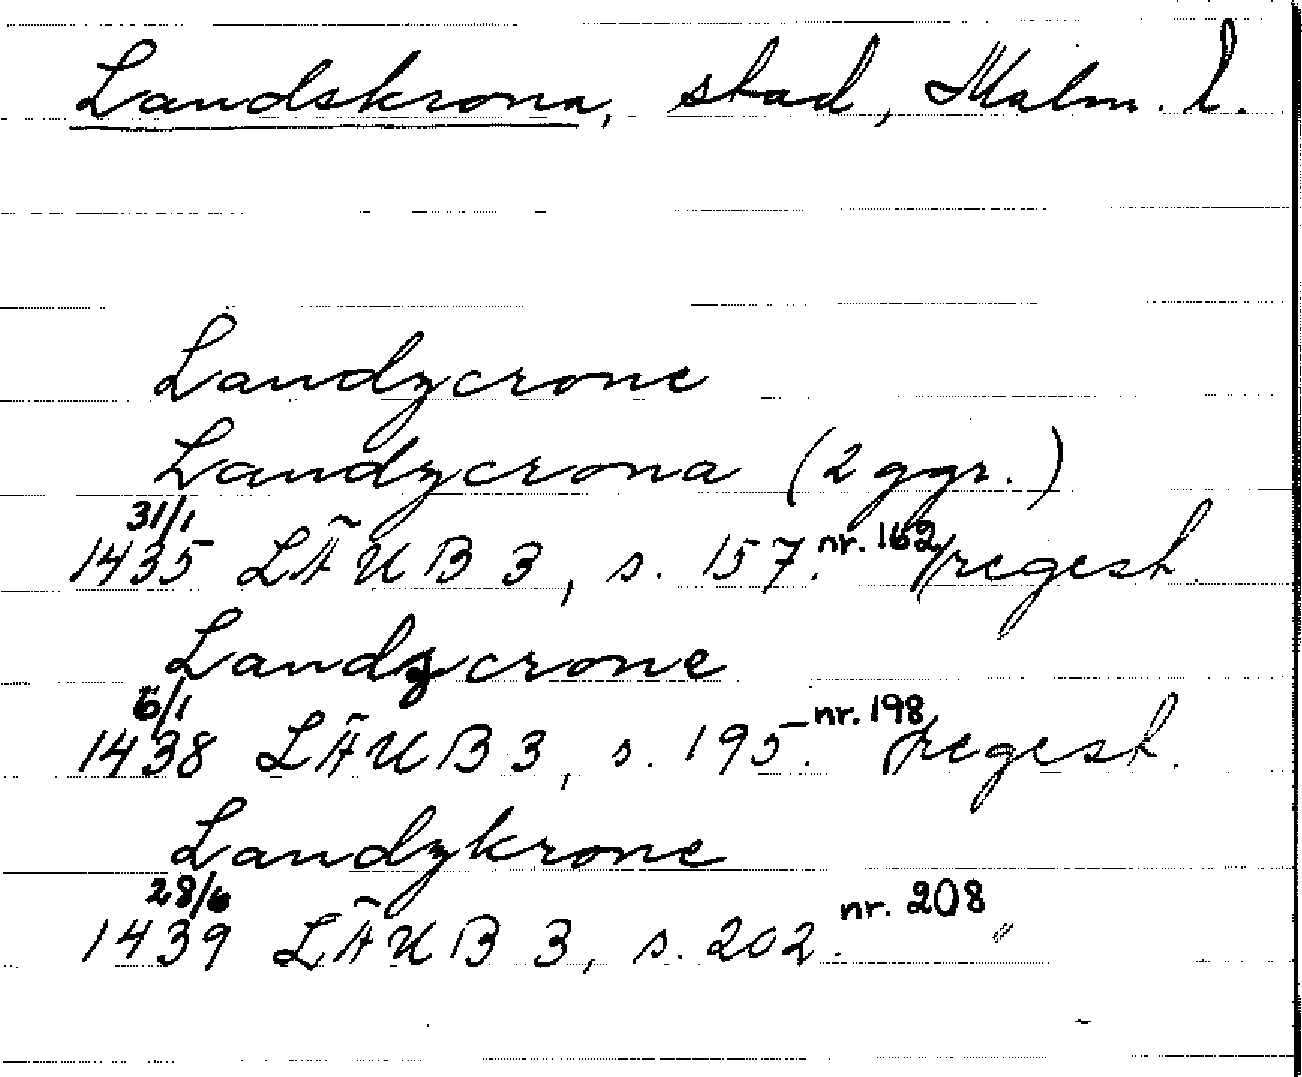 Landskrona, stad, Malm. l.
Landzcrone
Landzcrona (2 ggr.)
31/1
1435 LÄUB 3, s. 157. nr. 162 regest.
Landzcrone
6/1
1438 LÄUB 3, s. 195. nr. 198 regest.
Landzkrone
28/6
1439 LÄUB 3, s. 202. nr. 208 "